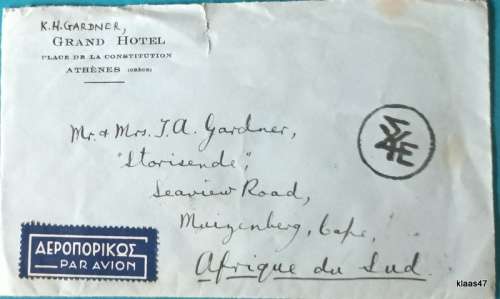 K.H. GARDNER,
GRAND HOTEL
PLACE DE LA CONSTITUTION
ATHÈNES (GRÈCE)
Mr. & Mrs. J.A. Gardner,
"Storisende",
Seaview Road,
Muizenberg, Cape,
Afrique du Sud.
ΑΕΡΟΠΟΡΙΚΩΣ
PAR AVION
klaas47